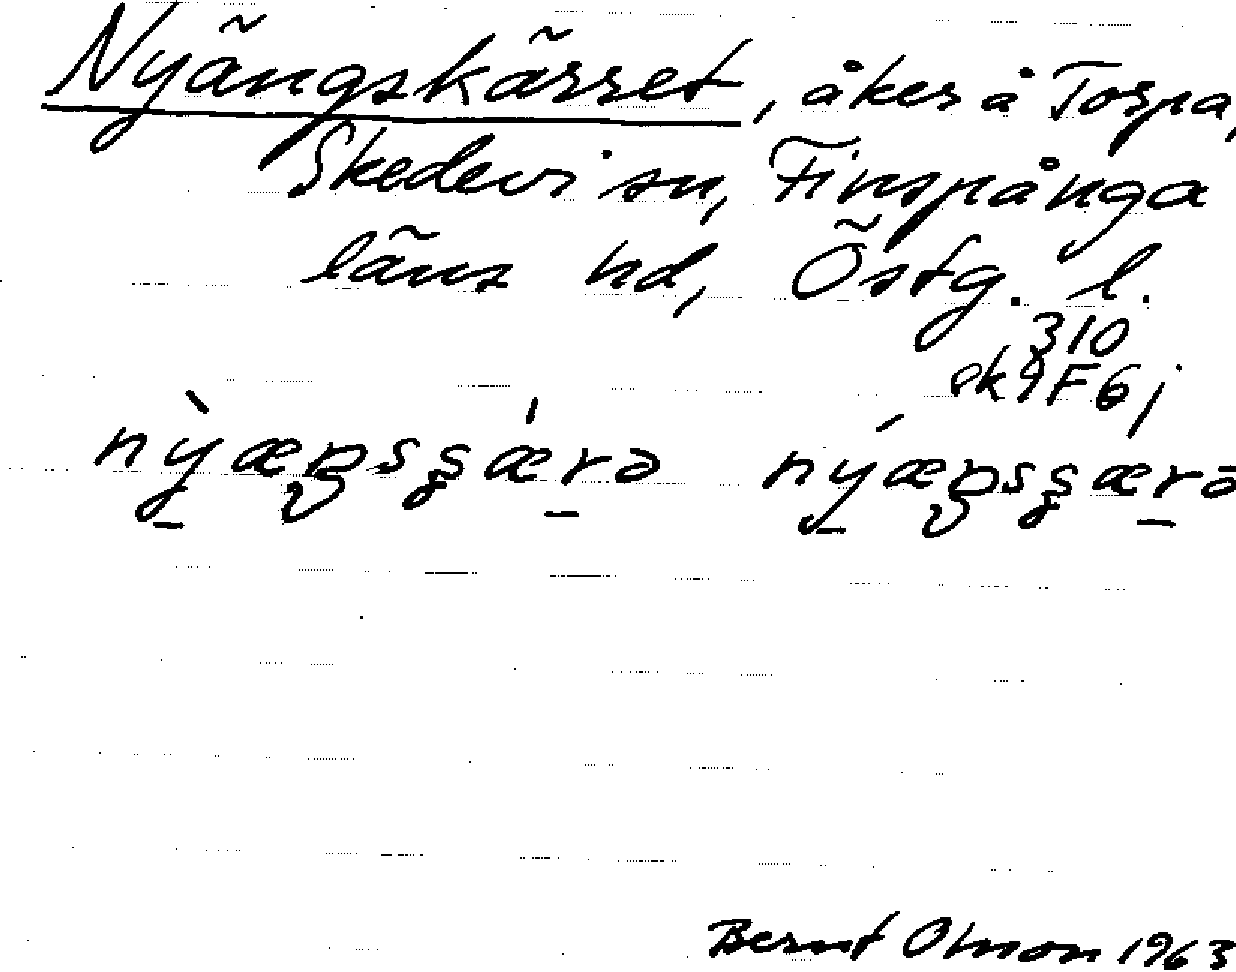 Nyängskärret, åker å Torpa,
Skedevi sn, Finspånga
läns hd, Östg. l.
310
ek 9F6j
nỳæŋsʂæ̀rə nýæŋsʂærə
Bernt Olsson 1963